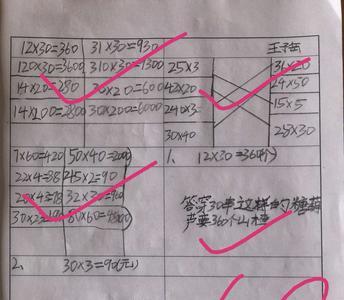 12×30=360 31×30=930
王子
120×30=3600 310×30=1300 25×3 36×20
14×20=280 30×20=600 42×20 24×50
14×200=2800 30×200=6000 240×3 15×5
30×40 25×30
7×60=420 50×40=2000 1、 12×30=360(个)
22×4=88 45×2=90
32×3=
30×2= 60×60=
答穿30串这样的糖葫
芦要360个山楂
2、 30×3=90(元)